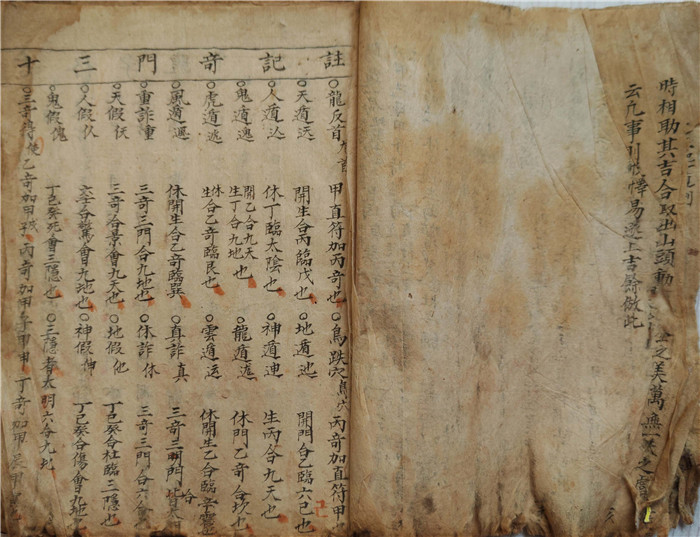 時相助其吉合取出山頭動
之美萬無一失之
云凡事引 擇易選上吉 做此
十三門奇記註
○龍反首 甲直符加丙奇也 ○鳥跌穴 丙奇加直符甲也
○天遁 開生合丙臨戊也 ○地遁 開門合乙臨六己也
○人遁 休丁臨太陰也 ○神遁 生丙合九天也
○鬼遁 開乙合九天 生丁合九地也 ○龍遁 休門乙奇合坎也
○虎遁 休生合乙奇臨艮也 ○雲遁 休開生乙合臨辛
○風遁 休開生合乙奇臨巽 ○直詐真 三奇三門
○重詐重 三奇三門合九地也 ○休詐休 三奇三門合六合
○天假 三奇合景會九天也 ○地假 丁己癸合杜臨三隱也
○人假 六壬合驚會九地也 ○神假 丁己癸合傷會九地也
○鬼假 丁己癸死會三隱也 ○三隱者太明六合九地
○三奇得使 乙奇加甲戌 丙奇加甲子甲申 丁奇加甲辰甲